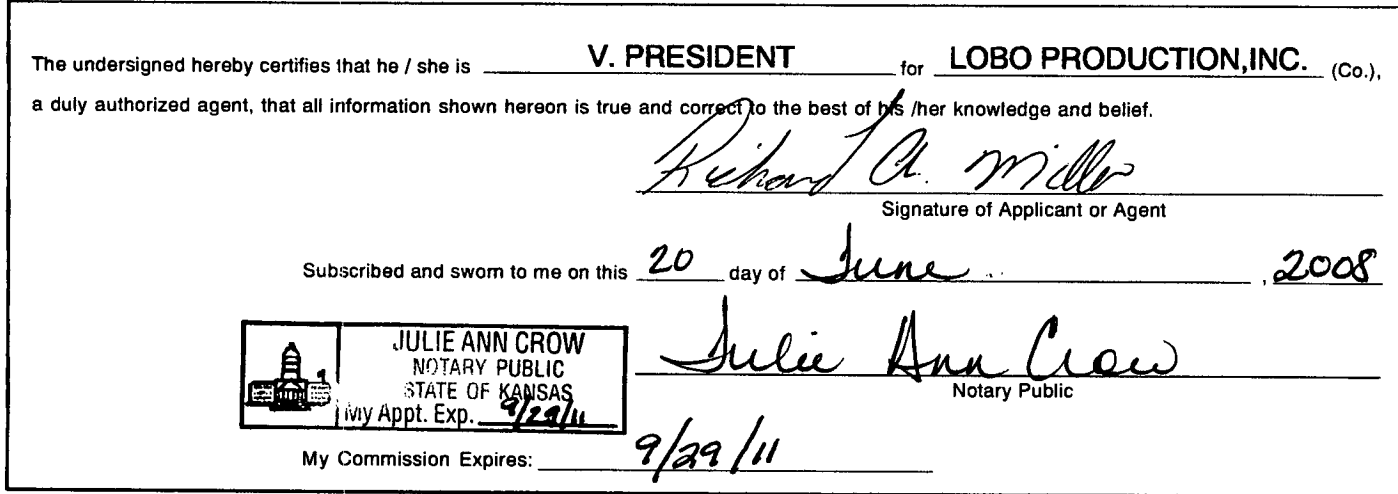 The undersigned hereby certifies that he / she is V. PRESIDENT for LOBO PRODUCTION,INC. (Co.),
a duly authorized agent, that all information shown hereon is true and correct to the best of his /her knowledge and belief.
Richard A. Miller
Signature of Applicant or Agent
Subscribed and sworn to me on this 20 day of June , 2008
JULIE ANN CROW
NOTARY PUBLIC
STATE OF KANSAS
My Appt. Exp. 9/29/11
Julie Ann Crow
Notary Public
My Commission Expires: 9/29/11